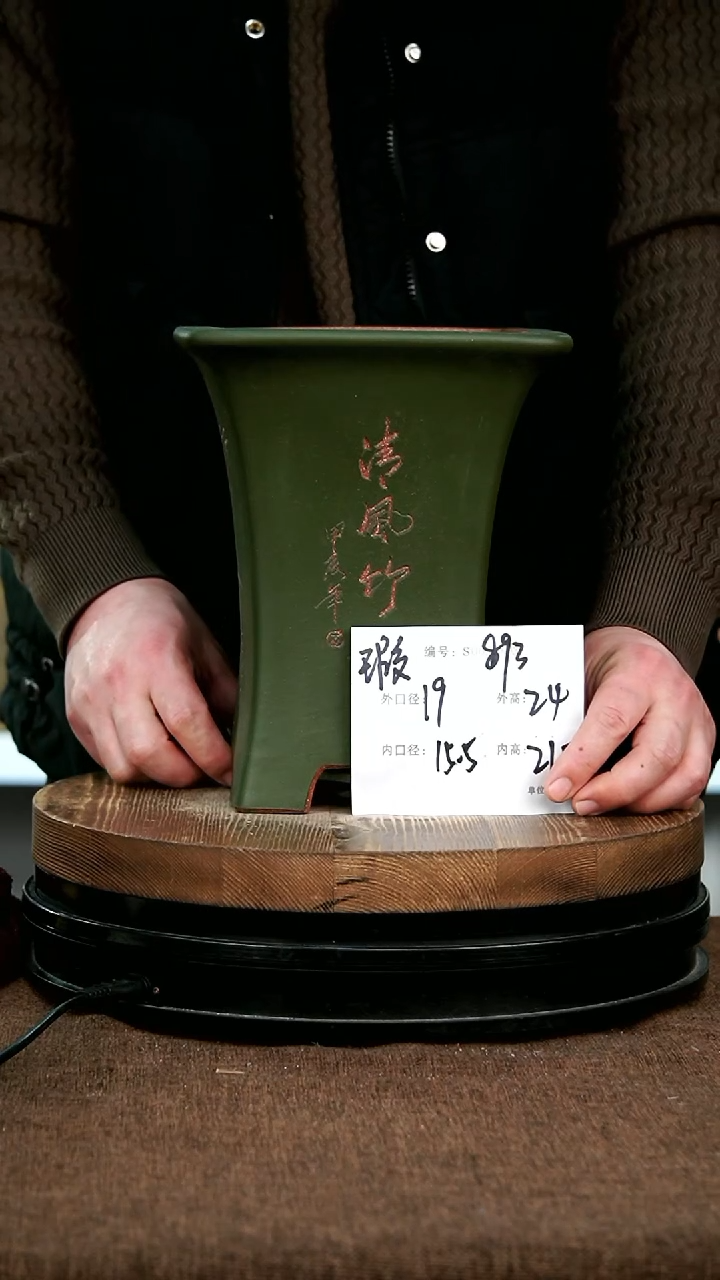 清风竹
瑕 编号：S 893
外口径：19 外高：24
内口径：15.5 内高：21
单位